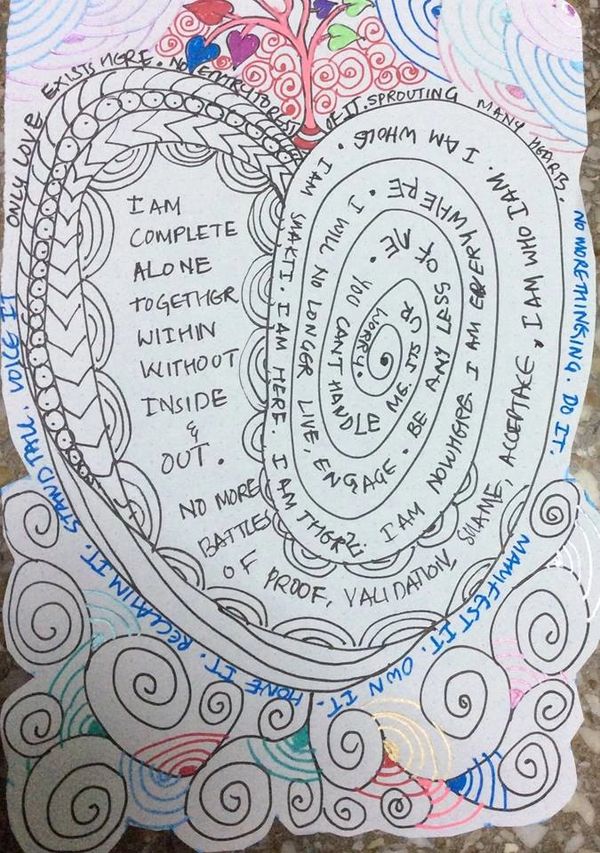 ONLY LOVE EXISTS HERE. NO ENTRY TO REST OF IT. SPROUTING MANY HEARTS.
I AM
COMPLETE
ALONE
TOGETHER
WITHIN
WITHOUT
INSIDE
&
OUT.
NO MORE
BATTLES
OF PROOF, VALIDATION, SHAME, ACCEPTACE, I AM WHO I AM. I AM WHOLE. I AM SHAKTI. I AM HERE. I AM THERE. I AM NOWHERE. I AM EVERYWHERE. I WILL NO LONGER LIVE, ENGAGE. BE ANY LESS OF ME. YOU CAN'T HANDLE ME. ITS UR WORRY.
NO MORE THINKING. DO IT.
MANIFEST IT. OWN IT.
HONE IT. RECLAIM IT. STAND TALL. VOICE IT